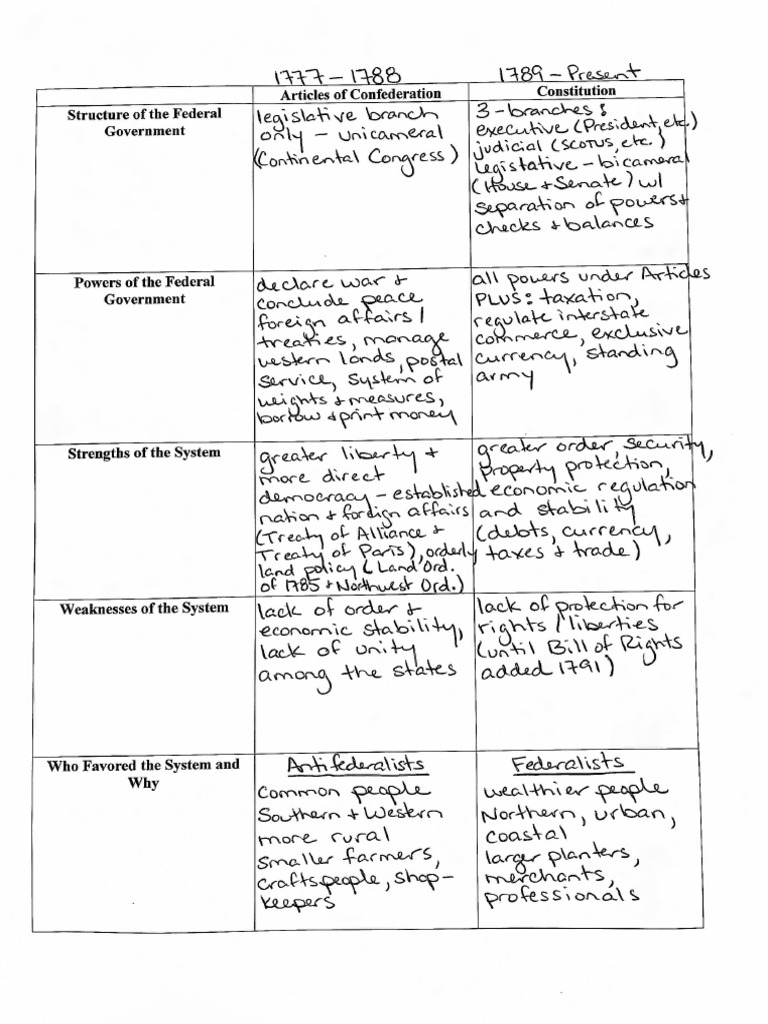 1777 – 1788
1789 – Present
Articles of Confederation
Constitution
Structure of the Federal
Government
legislative branch
only – unicameral
(Continental Congress)
3 – branches:
executive (President, etc.)
judicial (SCOTUS, etc.)
legislative – bicameral
(House + Senate) w/
separation of powers +
checks + balances
Powers of the Federal
Government
declare war +
conclude peace
foreign affairs/
treaties, manage
western lands, postal
service, system of
weights + measures,
borrow + print money
all powers under Articles
PLUS: taxation,
regulate interstate
commerce, exclusive
currency, standing
army
Strengths of the System
greater liberty +
more direct
democracy – established
nation + foreign affairs
(Treaty of Alliance +
Treaty of Paris), orderly
land policy (Land Ord.
of 1785 + Northwest Ord.)
greater order, security,
property protection,
economic regulation
and stability
(debts, currency,
taxes + trade)
Weaknesses of the System
lack of order +
economic stability,
lack of unity
among the states
lack of protection for
rights/liberties
(until Bill of Rights
added 1791)
Who Favored the System and
Why
Antifederalists
common people
Southern + Western
more rural
smaller farmers,
craftspeople, shop-
keepers
Federalists
wealthier people
Northern, urban,
coastal
larger planters,
merchants,
professionals